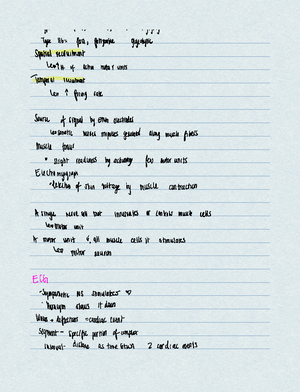 Type IIb= fast, glycolytic
Spatial recruitment
↳ ↑ # of active motor units
Temporal recruitment
↳ ↑ firing rate
Source of signal by EMG electrodes
↳ nerve impulses generated along muscle fibers
Muscle
• slight readiness by activating few motor units
Electromyogram
-detection of skin voltage by muscle contraction
A single nerve cell that innervates muscle cells
↳ motor unit
A motor unit all muscle cells it stimulates
↳ motor neuron
ECG
-Sympathetic NS stimulates ♡
slows it down
Waves + deflections = cardiac event
Segment - specific portion of complex
Interval- distance as time btwn 2 cardiac events